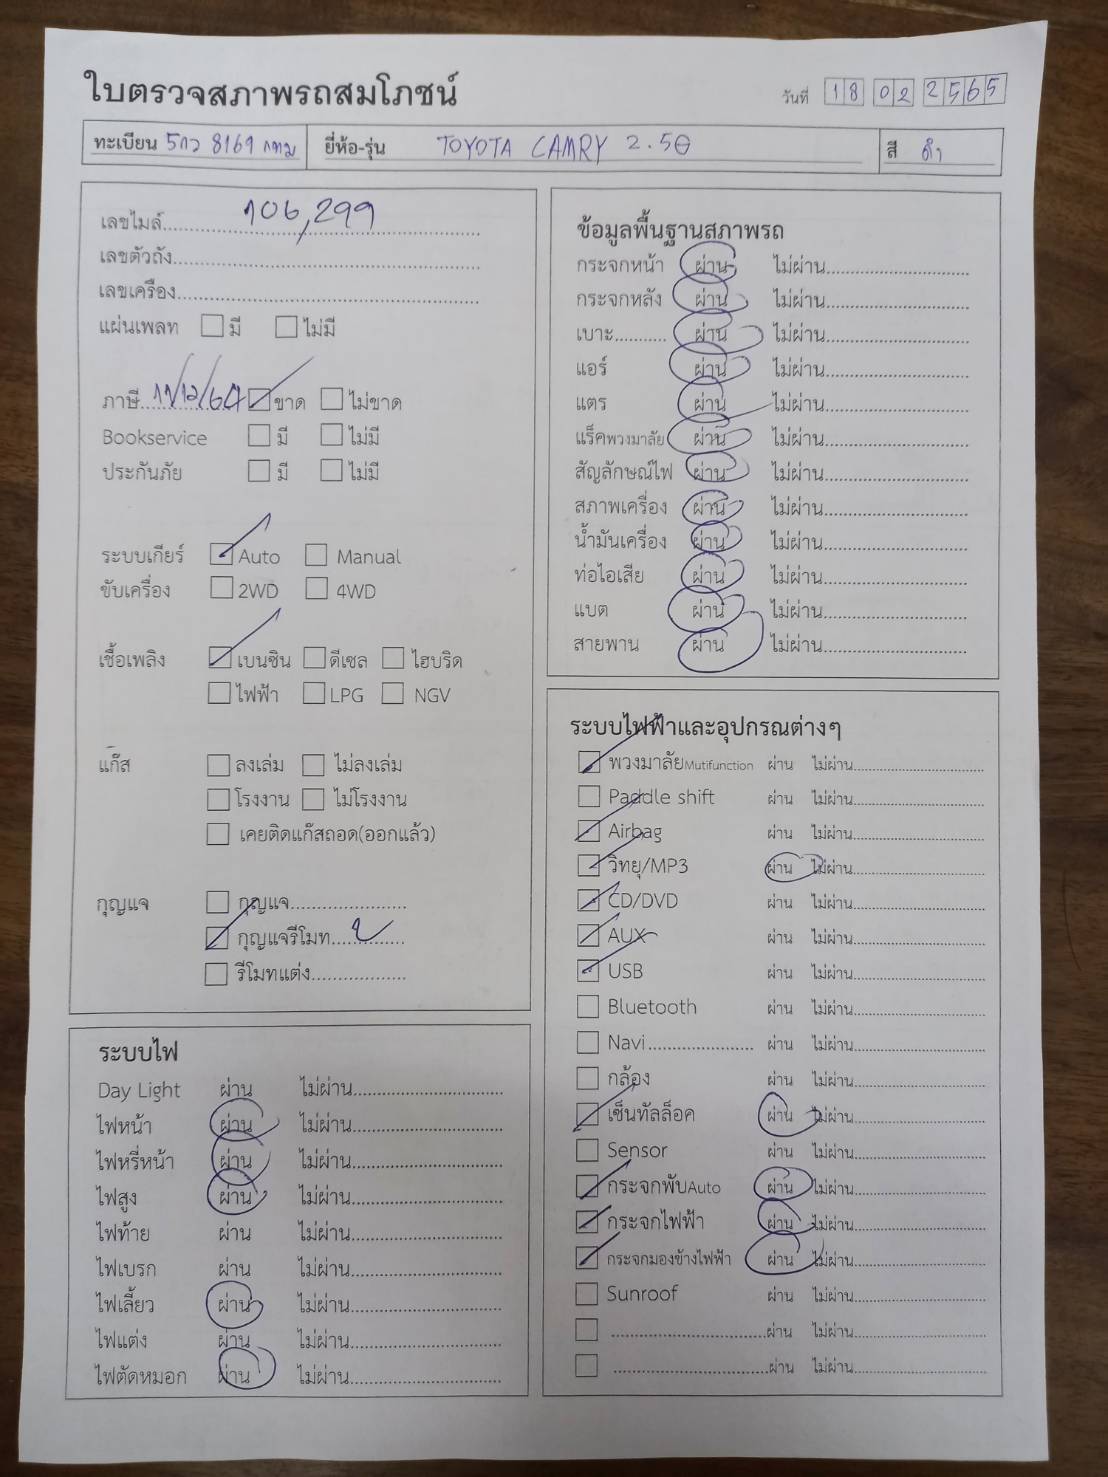 ใบตรวจสภาพรถสมโภชน์
วันที่ 18 02 2565
ทะเบียน 5กว 8169 กทม ยี่ห้อ-รุ่น TOYOTA CAMRY 2.5G สี ดำ
เลขไมล์ 106,299
เลขตัวถัง
เลขเครื่อง
แผ่นเพลท มี ไม่มี
ภาษี 11/12/64 ขาด ไม่ขาด
Bookservice มี ไม่มี
ประกันภัย มี ไม่มี
ระบบเกียร์ Auto Manual
ขับเครื่อง 2WD 4WD
เชื้อเพลิง เบนซิน ดีเซล ไฮบริด
ไฟฟ้า LPG NGV
แก๊ส ลงเล่ม ไม่ลงเล่ม
โรงงาน ไม่โรงงาน
เคยติดแก๊สถอด(ออกแล้ว)
กุญแจ กุญแจ
กุญแจรีโมท 2
รีโมทแต่ง
ระบบไฟ
Day Light ผ่าน ไม่ผ่าน
ไฟหน้า ผ่าน ไม่ผ่าน
ไฟหรี่หน้า ผ่าน ไม่ผ่าน
ไฟสูง ผ่าน ไม่ผ่าน
ไฟท้าย ผ่าน ไม่ผ่าน
ไฟเบรก ผ่าน ไม่ผ่าน
ไฟเลี้ยว ผ่าน ไม่ผ่าน
ไฟแต่ง ผ่าน ไม่ผ่าน
ไฟตัดหมอก ผ่าน ไม่ผ่าน
ข้อมูลพื้นฐานสภาพรถ
กระจกหน้า ผ่าน ไม่ผ่าน
กระจกหลัง ผ่าน ไม่ผ่าน
เบาะ ผ่าน ไม่ผ่าน
แอร์ ผ่าน ไม่ผ่าน
แตร ผ่าน ไม่ผ่าน
แร็คพวงมาลัย ผ่าน ไม่ผ่าน
สัญลักษณ์ไฟ ผ่าน ไม่ผ่าน
สภาพเครื่อง ผ่าน ไม่ผ่าน
น้ำมันเครื่อง ผ่าน ไม่ผ่าน
ท่อไอเสีย ผ่าน ไม่ผ่าน
แบต ผ่าน ไม่ผ่าน
สายพาน ผ่าน ไม่ผ่าน
ระบบไฟฟ้าและอุปกรณต่างๆ
พวงมาลัยMutifunction ผ่าน ไม่ผ่าน
Paddle shift ผ่าน ไม่ผ่าน
Airbag ผ่าน ไม่ผ่าน
วิทยุ/MP3 ผ่าน ไม่ผ่าน
CD/DVD ผ่าน ไม่ผ่าน
AUX ผ่าน ไม่ผ่าน
USB ผ่าน ไม่ผ่าน
Bluetooth ผ่าน ไม่ผ่าน
Navi ผ่าน ไม่ผ่าน
กล้อง ผ่าน ไม่ผ่าน
เซ็นทัลล็อค ผ่าน ไม่ผ่าน
Sensor ผ่าน ไม่ผ่าน
กระจกพับAuto ผ่าน ไม่ผ่าน
กระจกไฟฟ้า ผ่าน ไม่ผ่าน
กระจกมองข้างไฟฟ้า ผ่าน ไม่ผ่าน
Sunroof ผ่าน ไม่ผ่าน
ผ่าน ไม่ผ่าน
ผ่าน ไม่ผ่าน